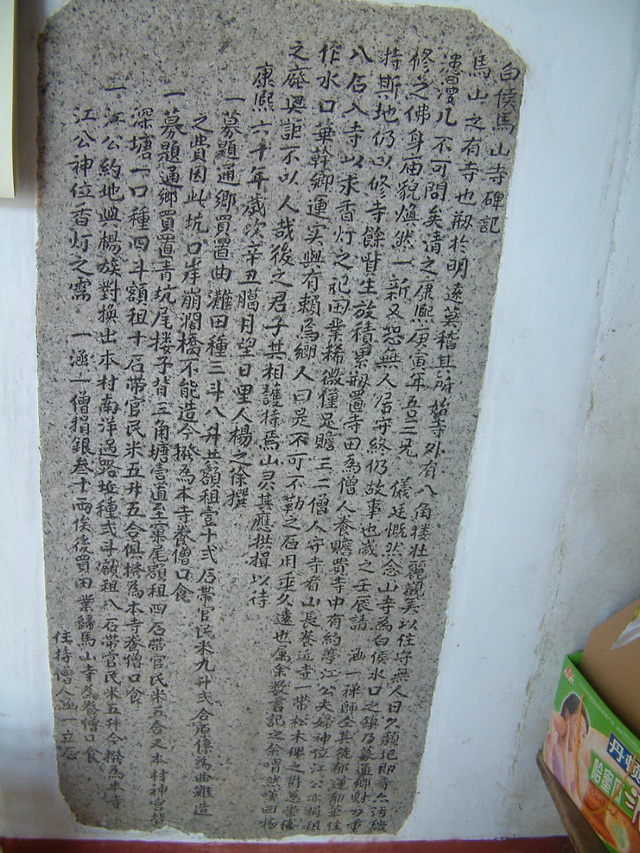 白侯馬山寺碑記
馬山之有寺也剏於明遠莫稽其所始寺外有八角楼壮麗觀美以住持無人日久頹圮即寺亦
漫漫几不可問矣清之康熙庚寅年吾三兄儀廷慨然念山寺為白侯水口之鎮乃募通鄉財力重
修之佛身庙貌爐然一新又恐無人居守終仍故事也歲之壬辰請涵一禅師
持斯地仍以修寺餘貲生放積累剏置寺田為僧人養贍費寺中有約尊江公夫婦神位江公亦捐租
八石入寺以求香灯之祀田業稀微僅足贍三二僧人守寺看山長養近寺一帶松木
作水口華幹鄉運实與有賴焉鄉人曰是不可不勒之石用垂久遠也属余數言記之余
之廢興詎不以人哉後之君子其相護持焉山灵其應拱揖以待
康熙六十年歲次辛丑臈月望日里人楊之徐撰
一募題通鄉買置曲灘田種三斗八升共額租壹十弍石帶官民米九升弍合
之費因此坑口岸崩濶橋不能造今撥為本寺養僧口食
一募題通鄉買置青坑尾楼子背三角塘壹直至窠尾額租四石帶官民米五合又本村神宫
深塘一口種四斗額租十石帶官民米五升五合俱撥為本寺養僧口食
一江公約地與楊族對換出本村南洋過路坵種弍斗額租八石帶官民米五升今撥為本寺
江公神位香灯之需 一涵一僧捐銀叁十両俟後買田業歸馬山寺為養僧口食
住持僧人涵一立石
丹
哈蜜瓜